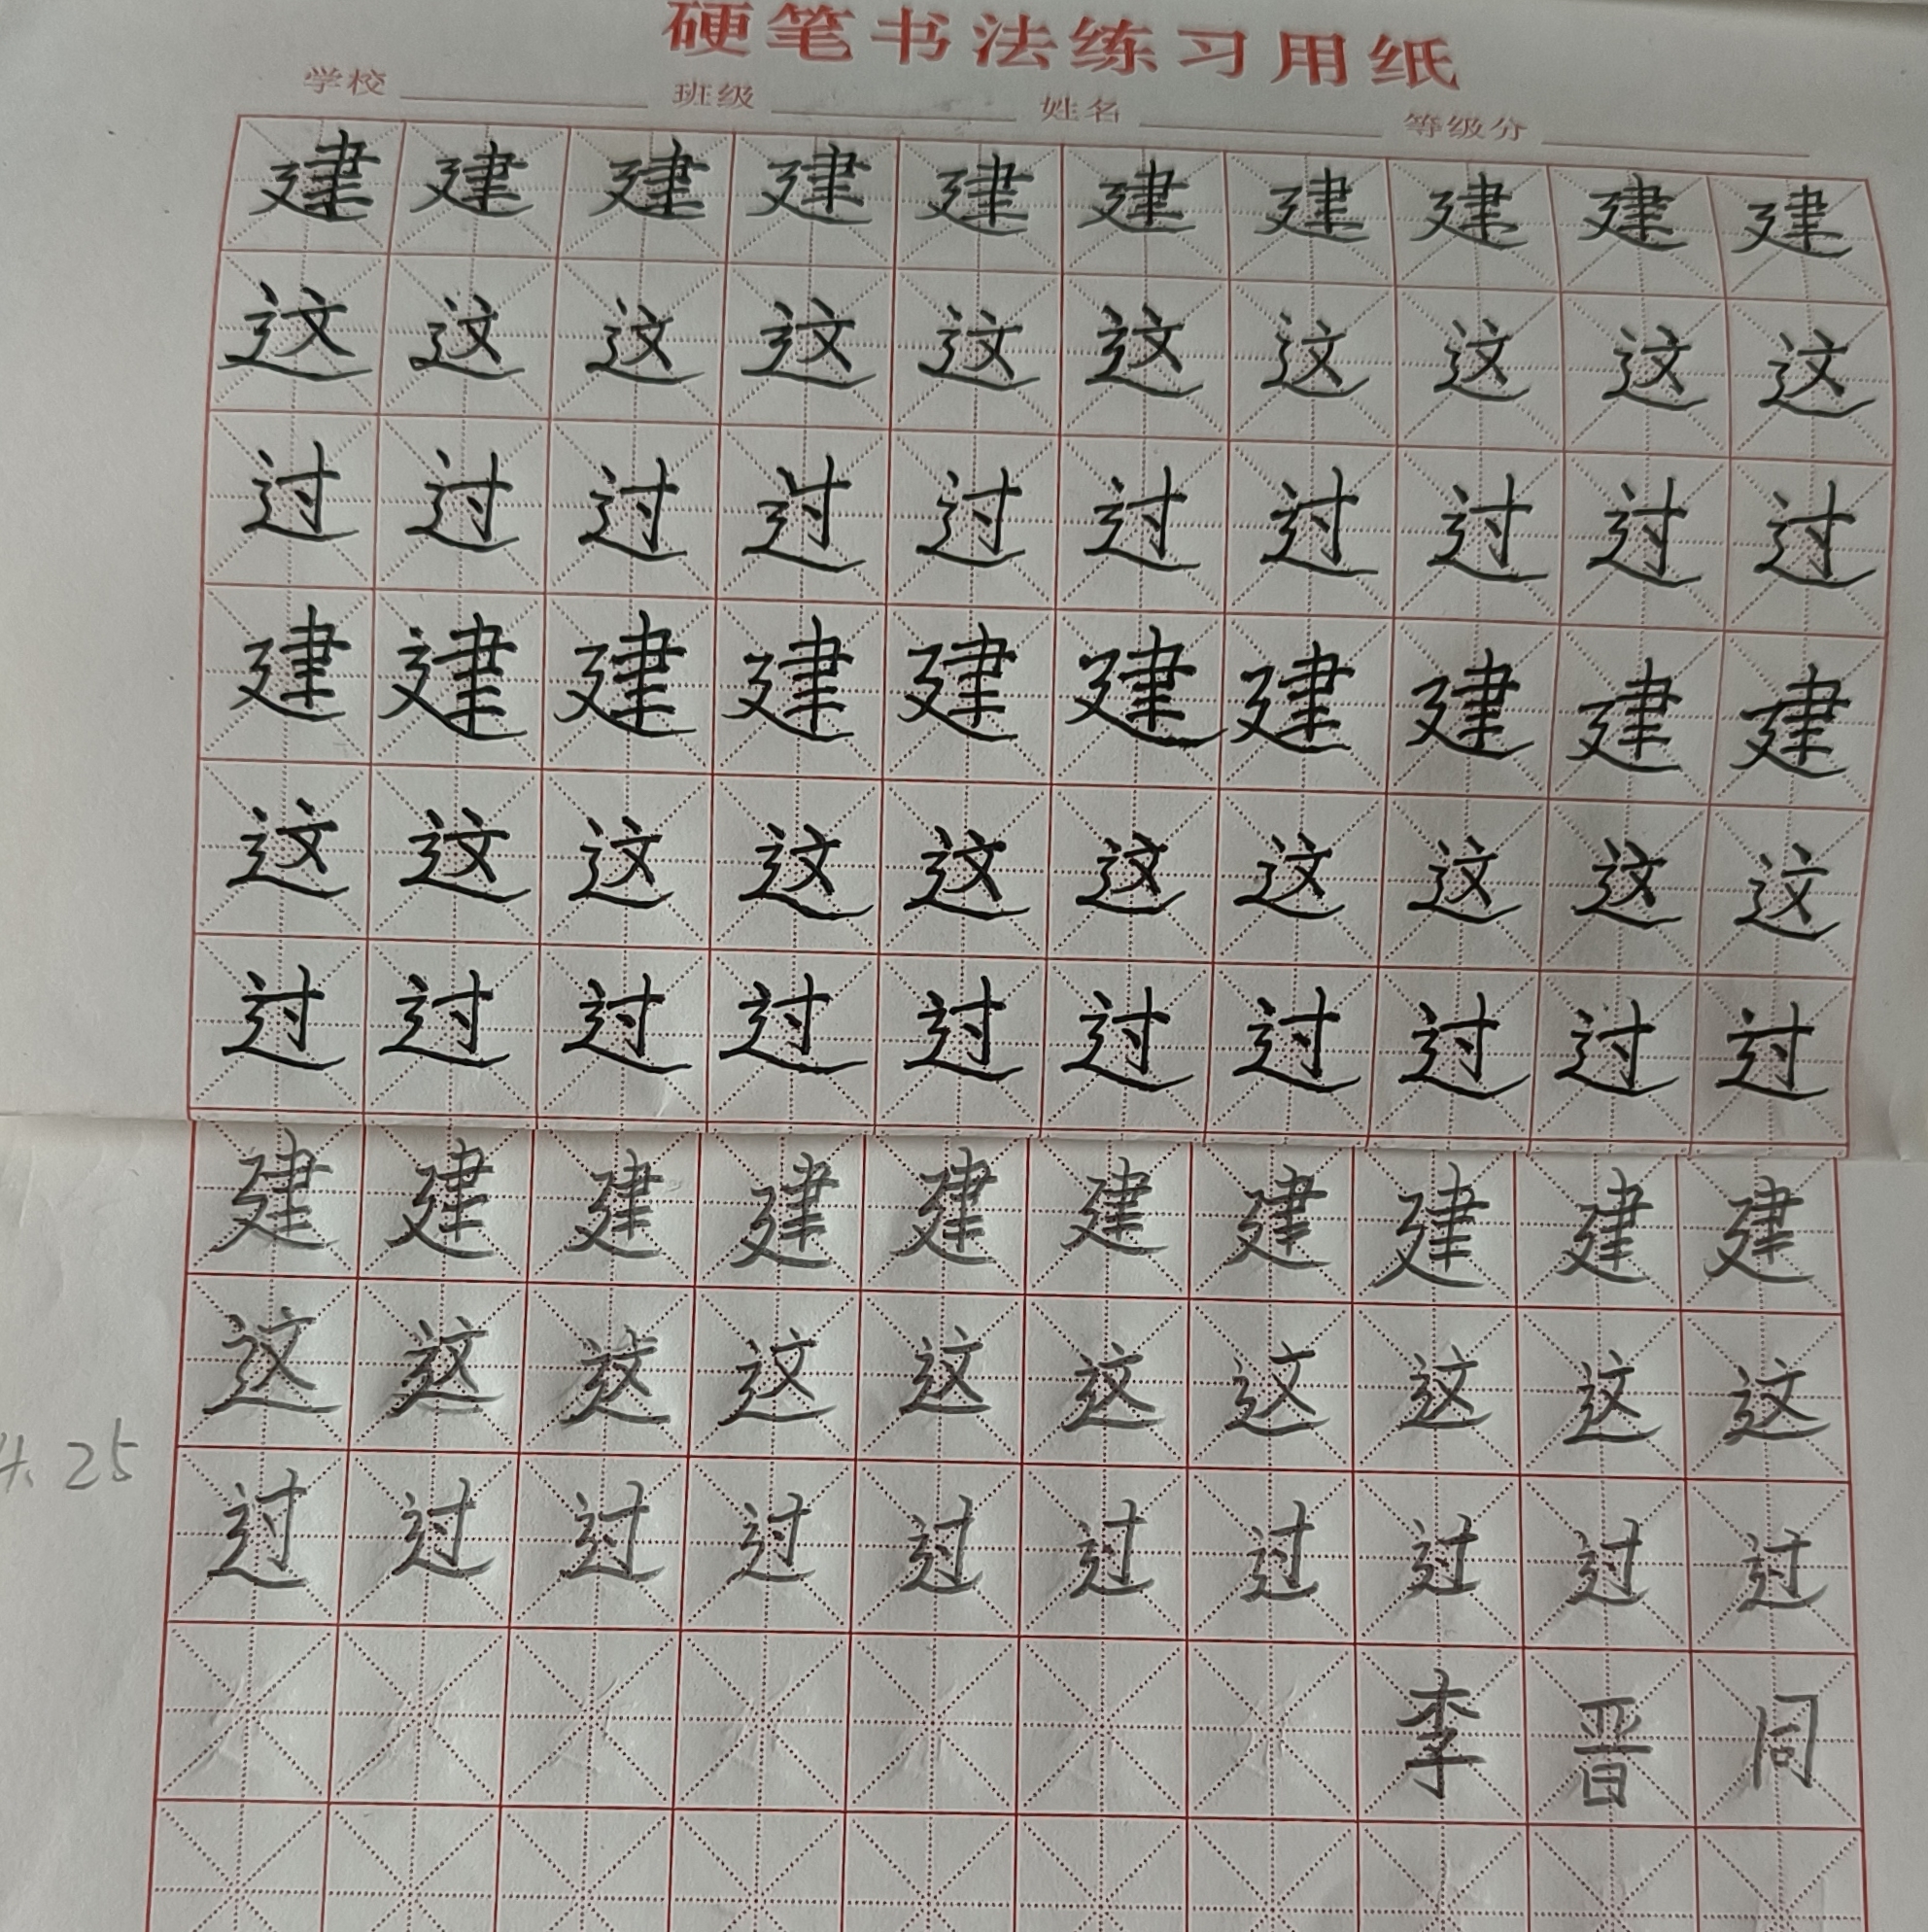 硬笔书法练习用纸
学校 班级 姓名 等级分
建建建建建建建建建建
这这这这这这这这这这
过过过过过过过过过过
建建建建建建建建建建
这这这这这这这这这这
过过过过过过过过过过
建建建建建建建建建建
这这这这这这这这这这
4.25
过过过过过过过过过过
李晋同